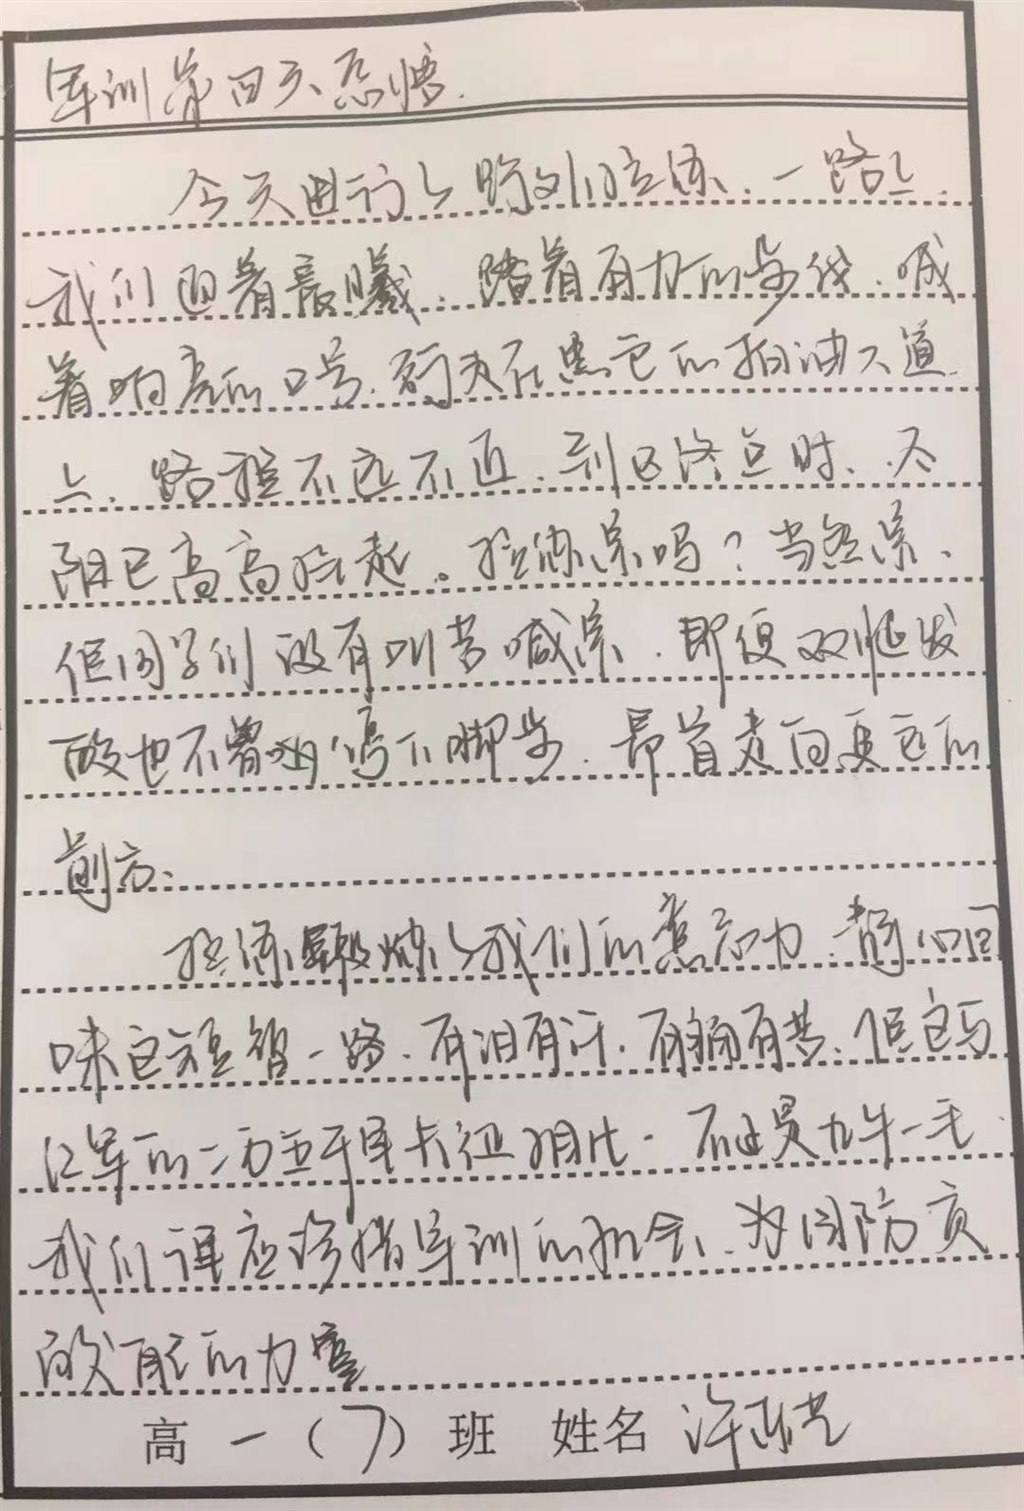 军训第四天感悟.
今天进行了野外拉练.一路上.
我们迎着晨曦.踏着有力的步伐.喊
着响亮的口号.行走在黑色的柏油大道
上.路程不远不近.到达终点时.太
阳已高高挂起。拉练累吗？当然累、
但同学们没有叫苦喊累.即便双腿发
酸也不曾停下脚步.昂首走向更远的
前方.
拉练锻炼了我们的意志力.静心回
味这短暂一路.有泪有汗.有痛有苦.但这与
红军的二万五千里长征相比.不过是九牛一毛.
我们更应珍惜军训的机会.为国防贡
献自己的力量
高一（7）班 姓名 许